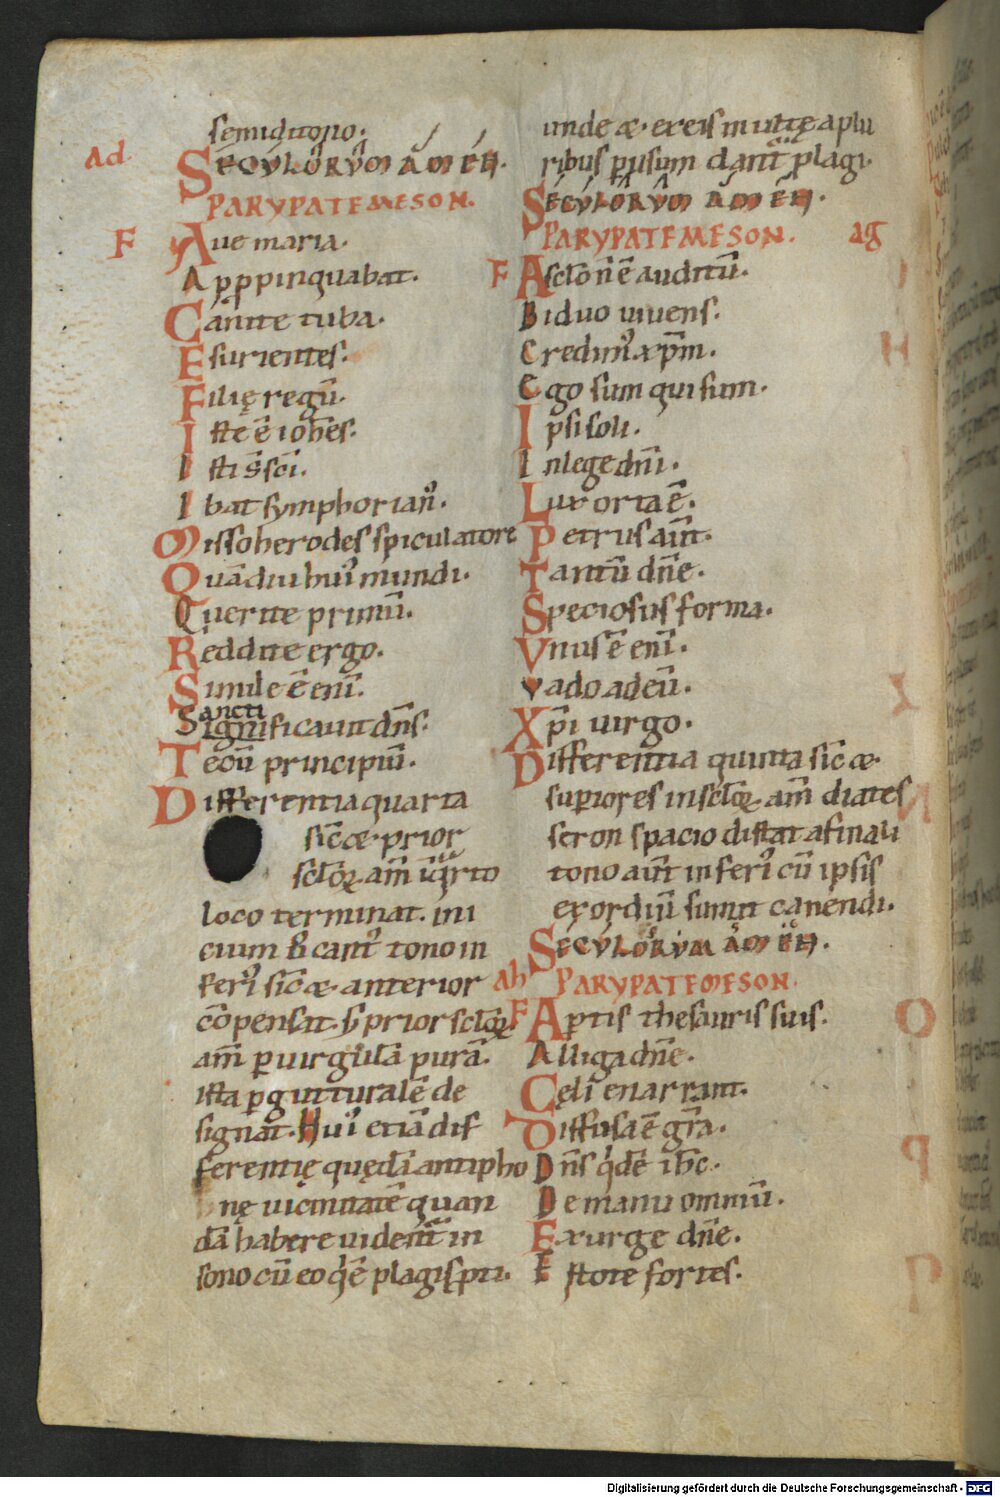 semiditono.
Ad.
SECVLORVM AMEN.
PARYPATEMESON.
F
Aue maria.
Apppinquabat.
Canite tuba.
Esurientes.
Filię regū.
Iste ē ioħes.
Isti s̄ sc̄i.
Ibat symphorian᾿.
Misso herodes spiculatore
Quādiu hui᾿ mundi.
Querite primū.
Reddite ergo.
Simile ē enī.
Sancti
Significauit dn̄s.
Tecū principiū.
Differentia quarta
sic̄ æ prior
scl̄oꝝ am̄
loco terminat. ini
cium ū cant᾿ tono in
feri᾿ sic̄ æ anterior
cōpensat. s; prior scl̄oꝝ
am̄ p uirgulā purā.
ista p gutturalē de
signat. Hui᾿ etiā dif
ferentię quędā antipho
nę uicinitatē quan
dā habere uident̄ in
sono cū eo qđ ē plagis pti.
unde æ. ex eis multę a plu
ribus psum dant̄ plagi.
SECVLORVM AMEN.
PARYPATEMESON.
ag
F
Ascl̄o n̄ ē auditū.
Biduo uiuens.
Credim᾿ xp̄m.
Ego sum qui sum.
Ipsi soli.
In lege dn̄i.
Lux orta ē.
Petrus ait̄.
Tantū dn̄e.
Speciosus forma.
Vnus ē enī.
Vado ad eū.
Xp̄i uirgo.
Differentia quinta sic̄ æ
supiores in scl̄oꝝ am̄ diates
seron spacio distat a finali
tono aūt inferi᾿ cū ipsis
exordiū sumit canendi.
SECVLORVM AMEN.
ah
PARYPATEMESON.
F
Aptis thesauris suis.
Alliga dn̄e.
Cęli enarrant.
Diffusa ē gr̄a.
Dn̄s qđē ih̄c.
De manu omniū.
Exurge dn̄e.
Estote fortes.
Digitalisierung gefördert durch die Deutsche Forschungsgemeinschaft - DFG